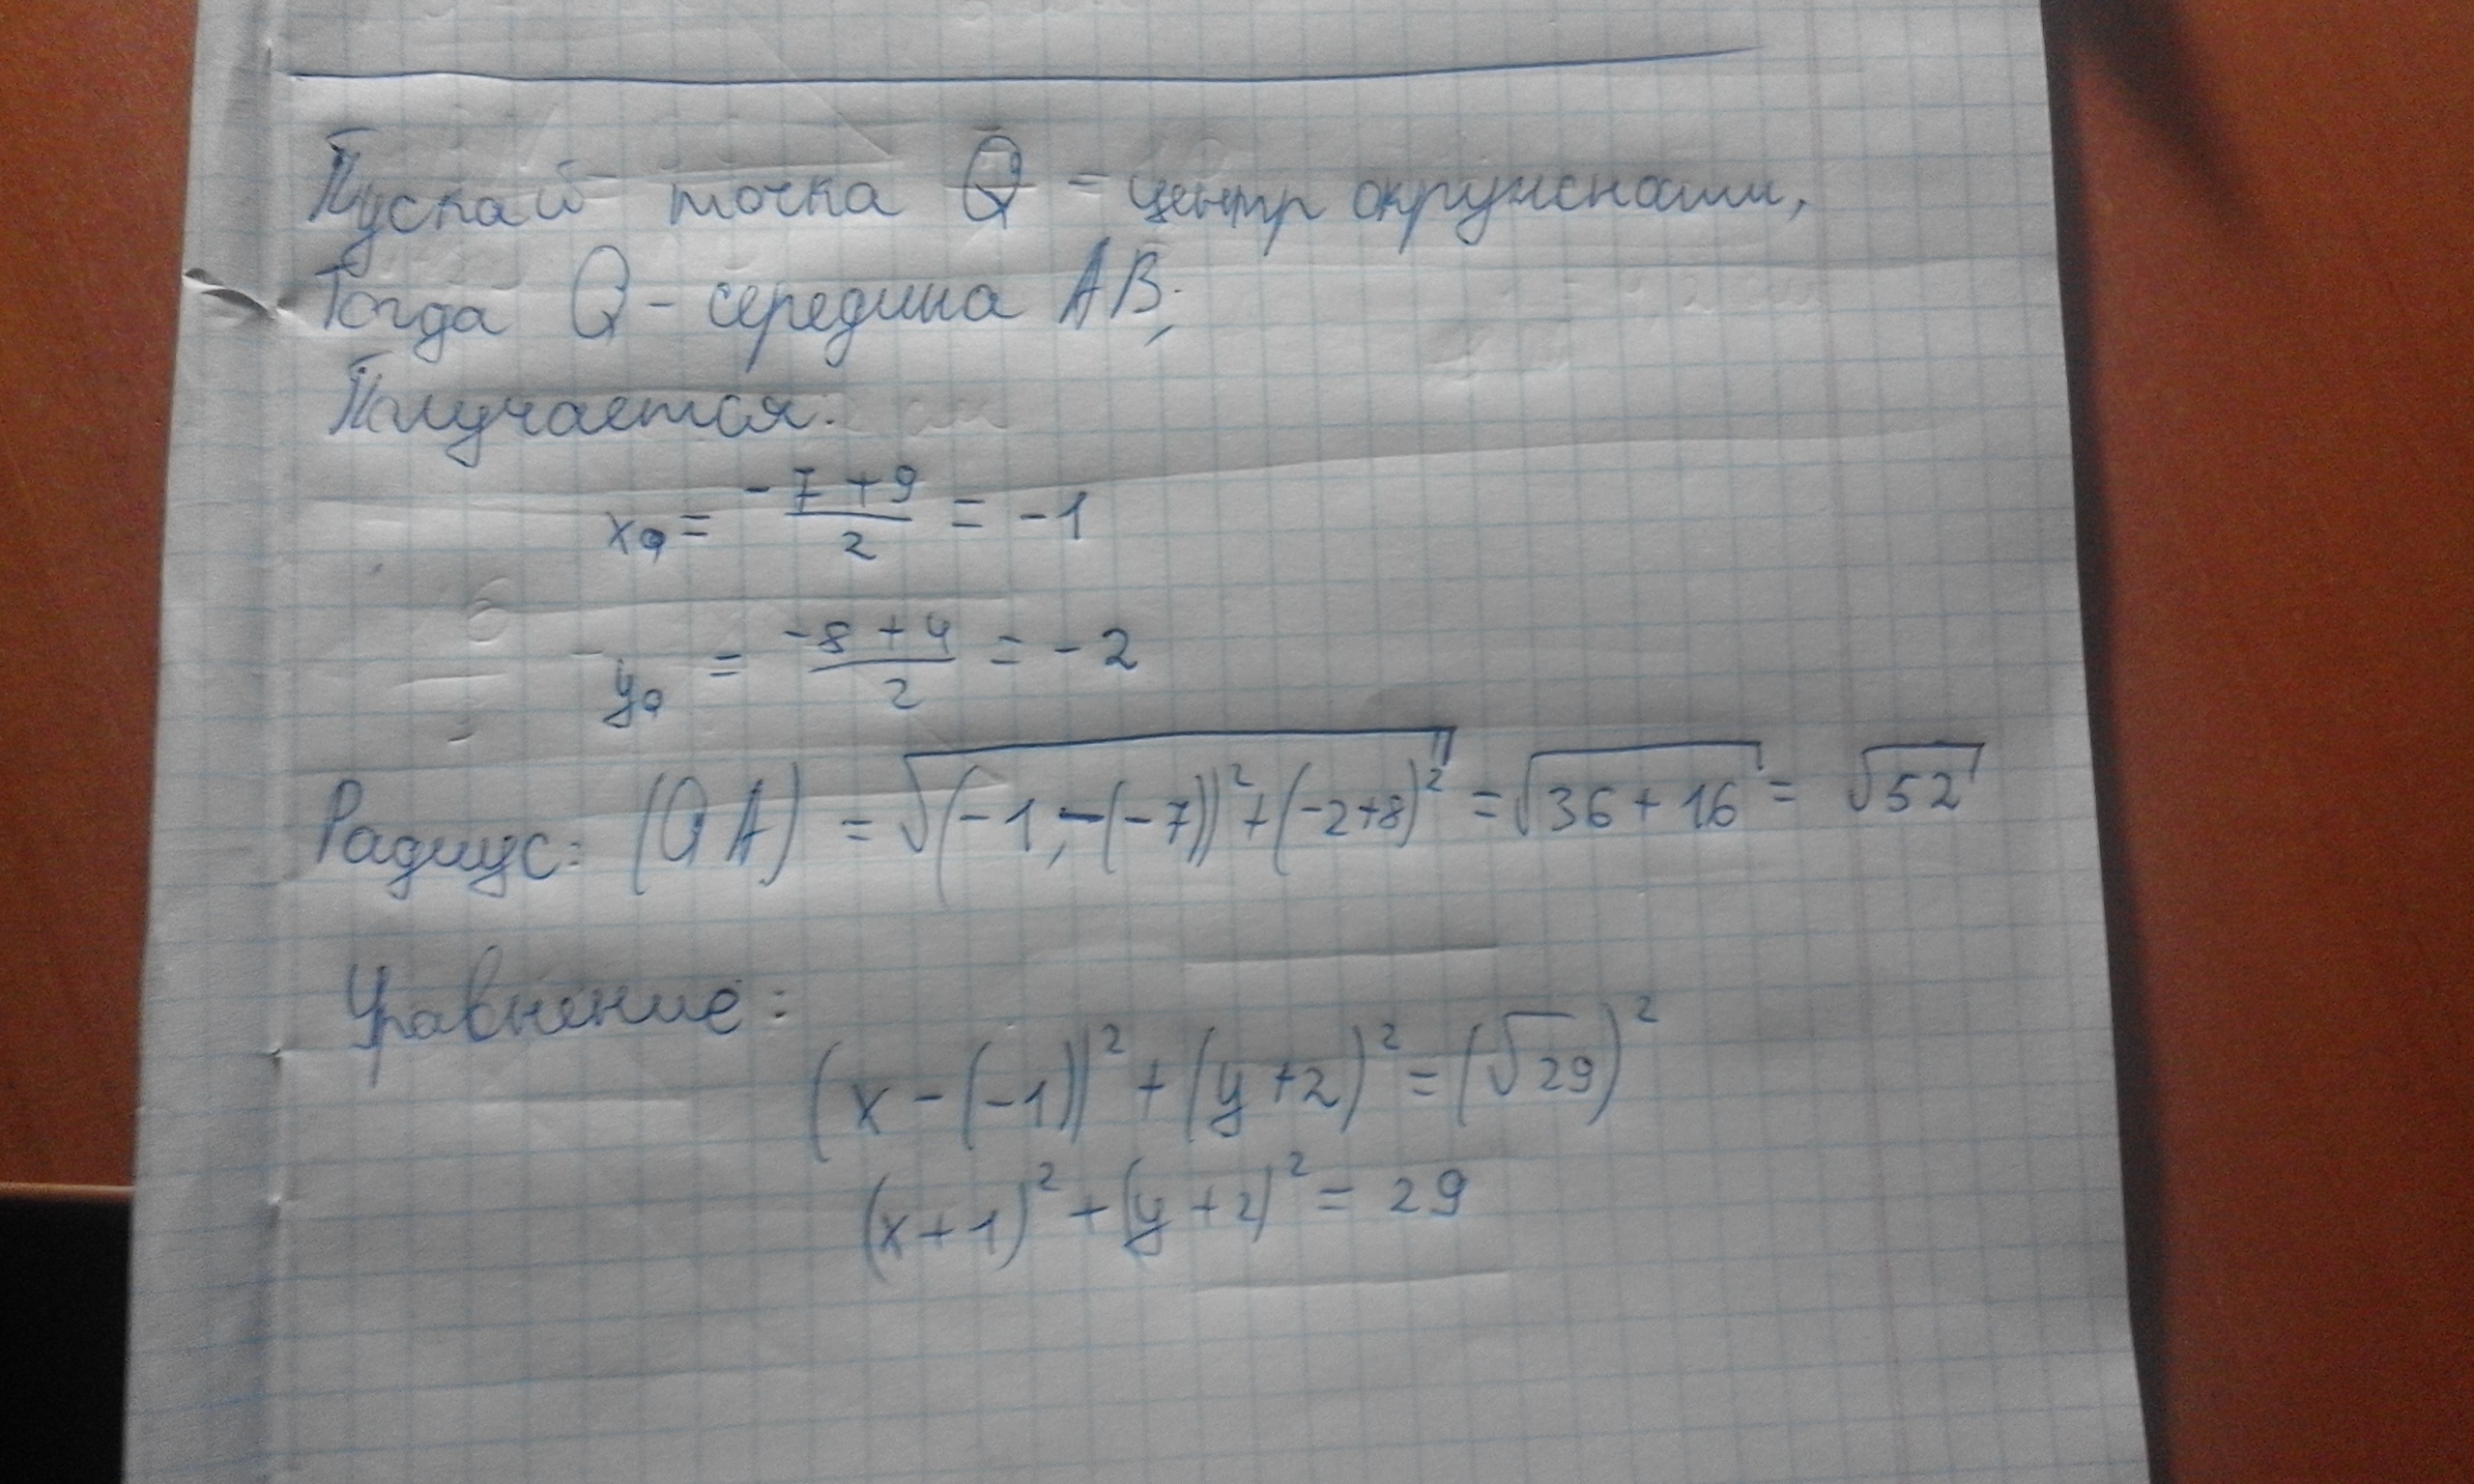 Пускай точка Q - центр окружности,
Тогда Q - середина AB;
Получается:
x_Q = (-7+9)/2 = -1
y_Q = (-8+4)/2 = -2
Радиус: (QA) = √((-1,-(-7))²+(-2+8)²) = √(36+16) = √52
Уравнение:
(x-(-1))²+(y+2)²=(√29)²
(x+1)²+(y+2)²=29